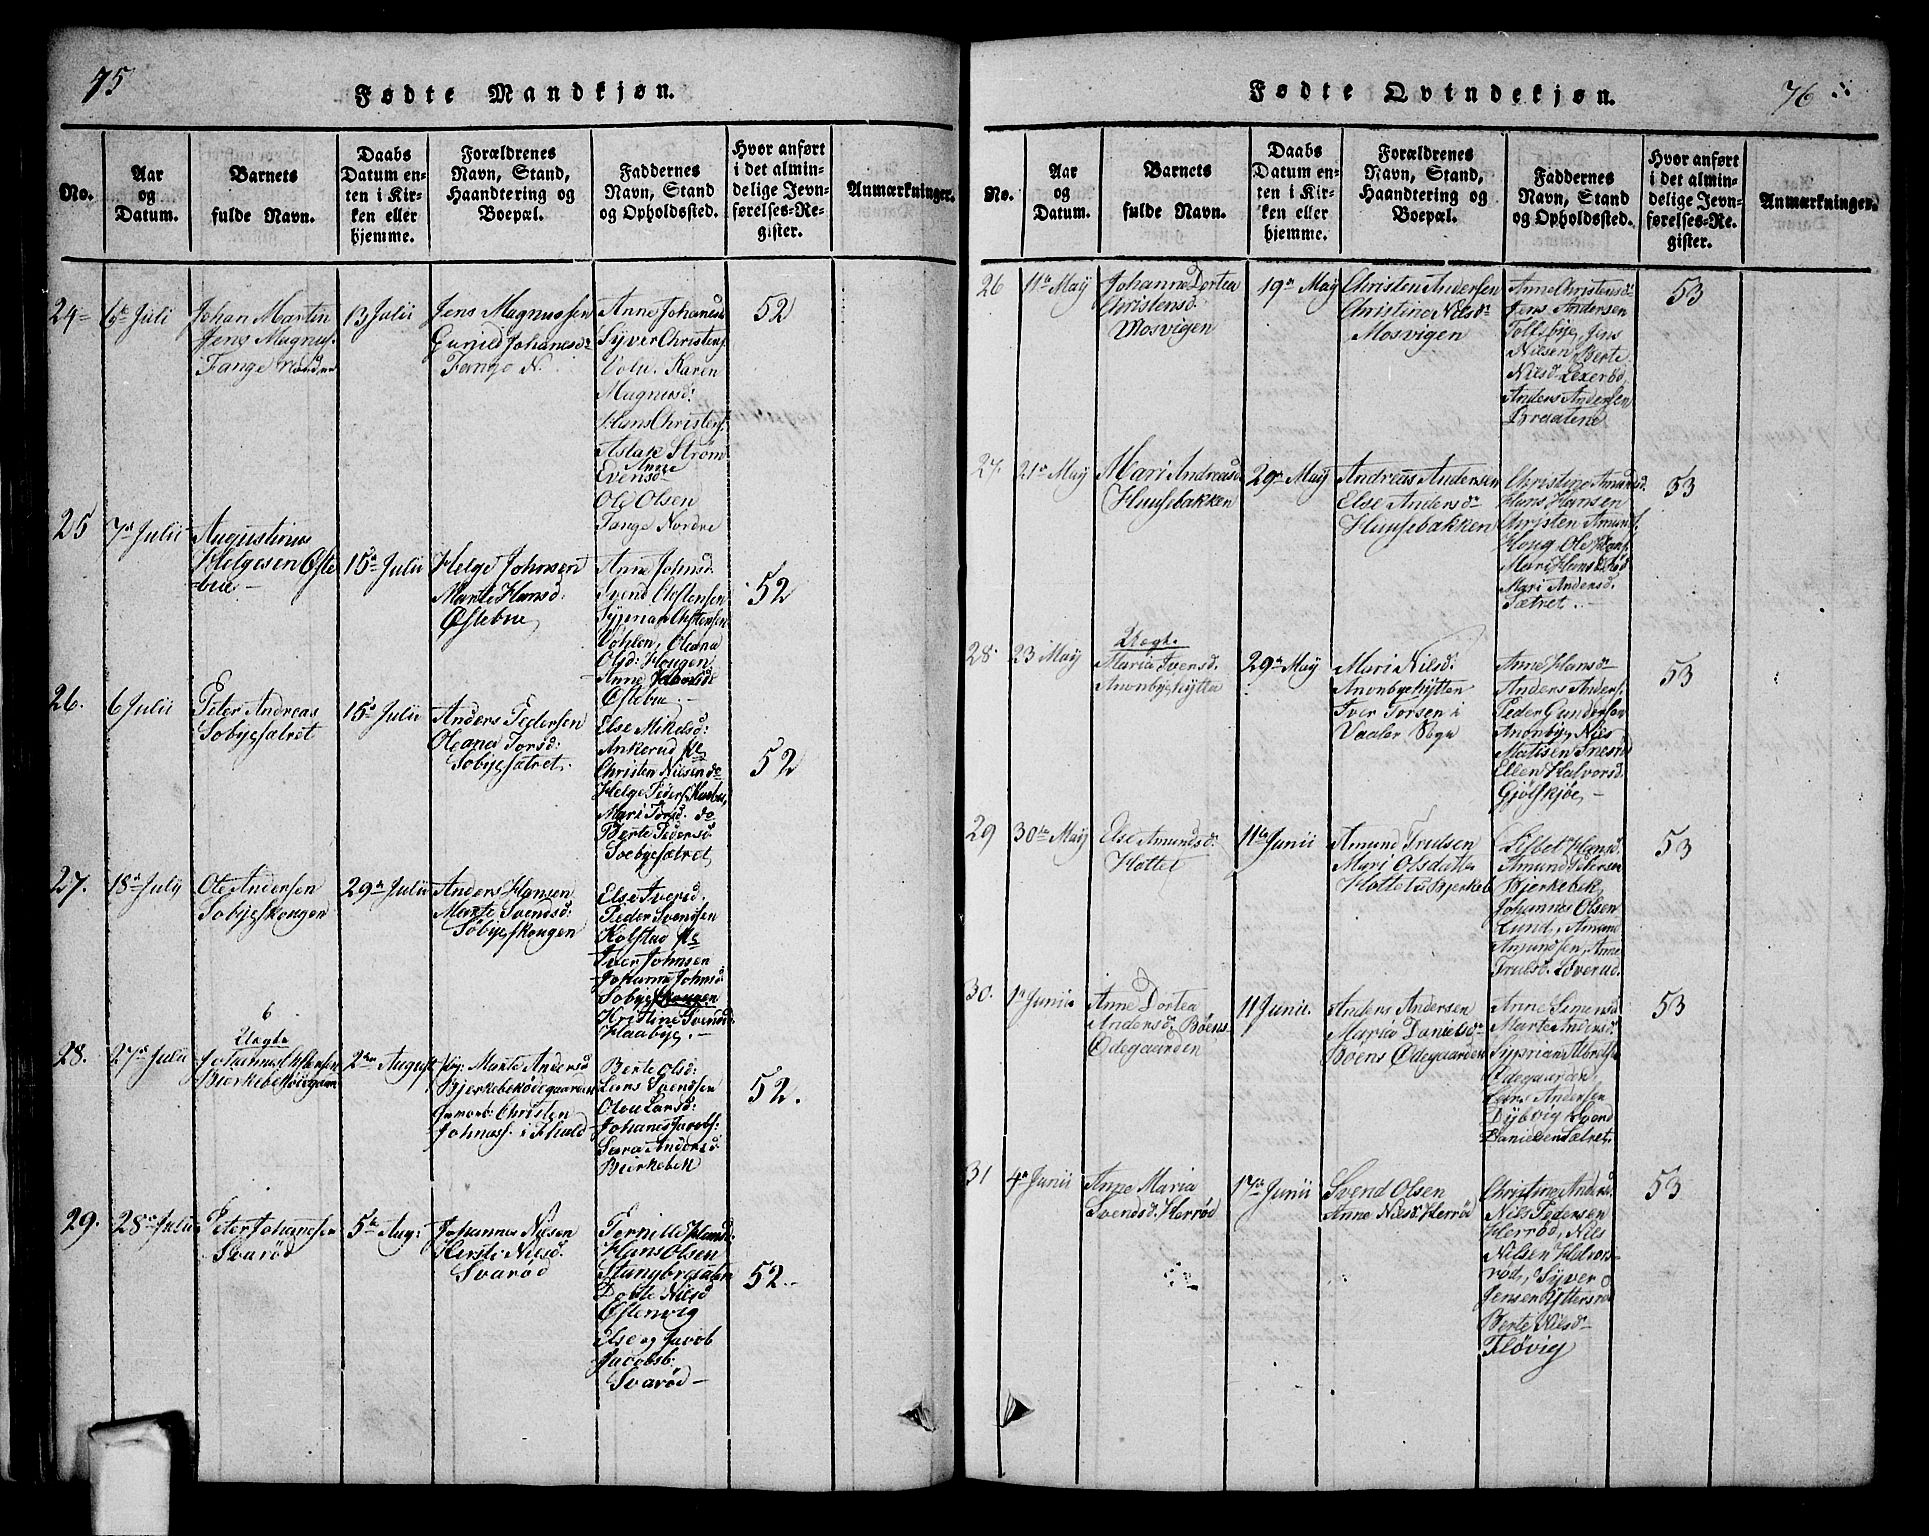 75
Fødte Mandkjøn.
No.
Aar
og
Datum.
Barnets
fulde Navn.
Daabs
Datum en-
ten i Kir-
ken eller
hjemme.
Forældrenes
Navn, Stand,
Haandtering og
Boepæl.
Faddernes
Navn, Stand
og Opholdssted.
Hvor anført
i det almin-
delige Jevn-
førelses-Re-
gister.
Anmærkninger.
24
6te Juli
Johan Martin
Jens Magnus:
Tange Nordre
13 Julii
Jens Magnussen
Gunild Johanesd:
Tange N.
Anne Johanesd
Syver Christens:
Karen
Magnusd:
Hans Christens:
Aslak Strøm
Anne
Evensd
Ole Olsen
Tange Nordre
52
25
7de Julii
Augustinus
Helgesen Øste
bue
15de Julii
Helge Johnsen
Marte Hansd:
Østebue
Anne Johnsd:
Svend Chstensen
Chstensen
Vohlen, Oleana
Olsd: Hougen
Anne
Østebue
52
26.
6 Julii
Peter Andreas
Sobyesætret
15de Julii
Anders Pedersen
Oleana Torsd:
Sobyesætret.
Else Mikelsd:
Ankerud
Christen Nilsen do
Helge Peders:
Mari Torsd. do
Berte Pedersd
Soebyesætret
52
27.
18de July
Ole Andersen
Sobyeskougen
29de Julii
Anders Hansen
Marte Svendsd:
Sobyeskougen
Else Iversd.
Peder Svendsen
Kolstad
Iver Johnsen
Johanna Johnsd:
Sobyeskougen
Kristine Svendsd.
Haabye.
28.
27de Julii
6
Uægte
Johannes Chstensen
Bjerkebekødegaard
2den August
Pig: Marte Andersd
Bjerkebekødegaarden
Christen
Johnass. i Fhald
Berte Olsd:
Lars Svendsen
Olea Larsd:
Johanes Jacobs:
Sara Andersd
Bierkebek
52.
29.
28de Julii
Peter Johansen
Svarød
5te Aug:
Johannes Nilsen
Kirsti Nilsd.
Svarød
Pernille Hansd:
Hans Olsen
Stangbraaten
Dorte Nilsd
Østenvig
Else og Jacob
Jacobsb:
Svarød
52.
76
Fødte Qvindekjøn.
No.
Aar
og
Datum.
Barnets
fulde Navn.
Daabs
Datum en-
ten i Kir-
ken eller
hjemme.
Forældrenes
Navn, Stand,
Haandtering og
Boepæl.
Faddernes
Navn, Stand
og Opholdssted.
Hvor anført
i det almin-
delige Jevn-
førelses-Re-
gister.
Anmærkninger.
26
11te May
Johanne Dortea
Christensd:
Mosvigen
19de May
Christen Andersen
Christine Nilsd:
Mosvigen
Anne Christensd:
Jens Andersen
Tollsbye, Jens
Nilsen, Berte
Nilsd Lexerød,
Anders Andersen
Braatene
53
27.
21de May
Mari Andreasd
Huusebakken
29de May
Andreas Andersen
Else Andersd:
Huusebakken
Christine Amundsd.
Hans Hansen
Christen Amunds.
Houg Ole Hans.
Mari Hansd
Mari Andersd.
Sætret.
53
28.
23 May
Uægt.
Maria Iversd.
Anonbyehytta
29de May
Mari Nilsd:
Anonbyehytten
Iver Torsen i
Vaaler Sogn
Anne Hansd
Anders Anders.
Peder Gundersen
Anonbye, Nils
Matisen
Ellen Halvorsd.
Gjølskjøe,
53
29
30te May
Else Amundsd:
Hottet
11te Junii
Amund Trulsen
Mari Olsdatter
Hottet u Bjerkeb
Lisbet Hansd
Amund Petersen
Bjerkebek
Johannes Olsen
Lund, Amund
Amundsen, Anne
Trulsd. Løverud.
53
30.
1te Junii
Anne Dortea
Andersd: Bøens
Ødegaarden
11 Junii.
Anders Andersen
Maria Danielsd:
Bøens Ødegaarden
Anne Simensd:
Marte Andersd.
Syprian Albrets.
Ødegaarden
Lars Andersen
Dybvig Svend
Danielsen Sætret.
53
31
4de Junii
Anne Maria
Svendsd: Herrød
17de Junii
Svend Olsen
Anne Nilsd: Herrød
Christine Andersd.
Nils Pedersen
Herrød, Nils
Nilsen Helvors-
rød, Syver
Jensen Rytters
Berte Nilsd
Fløvig
53